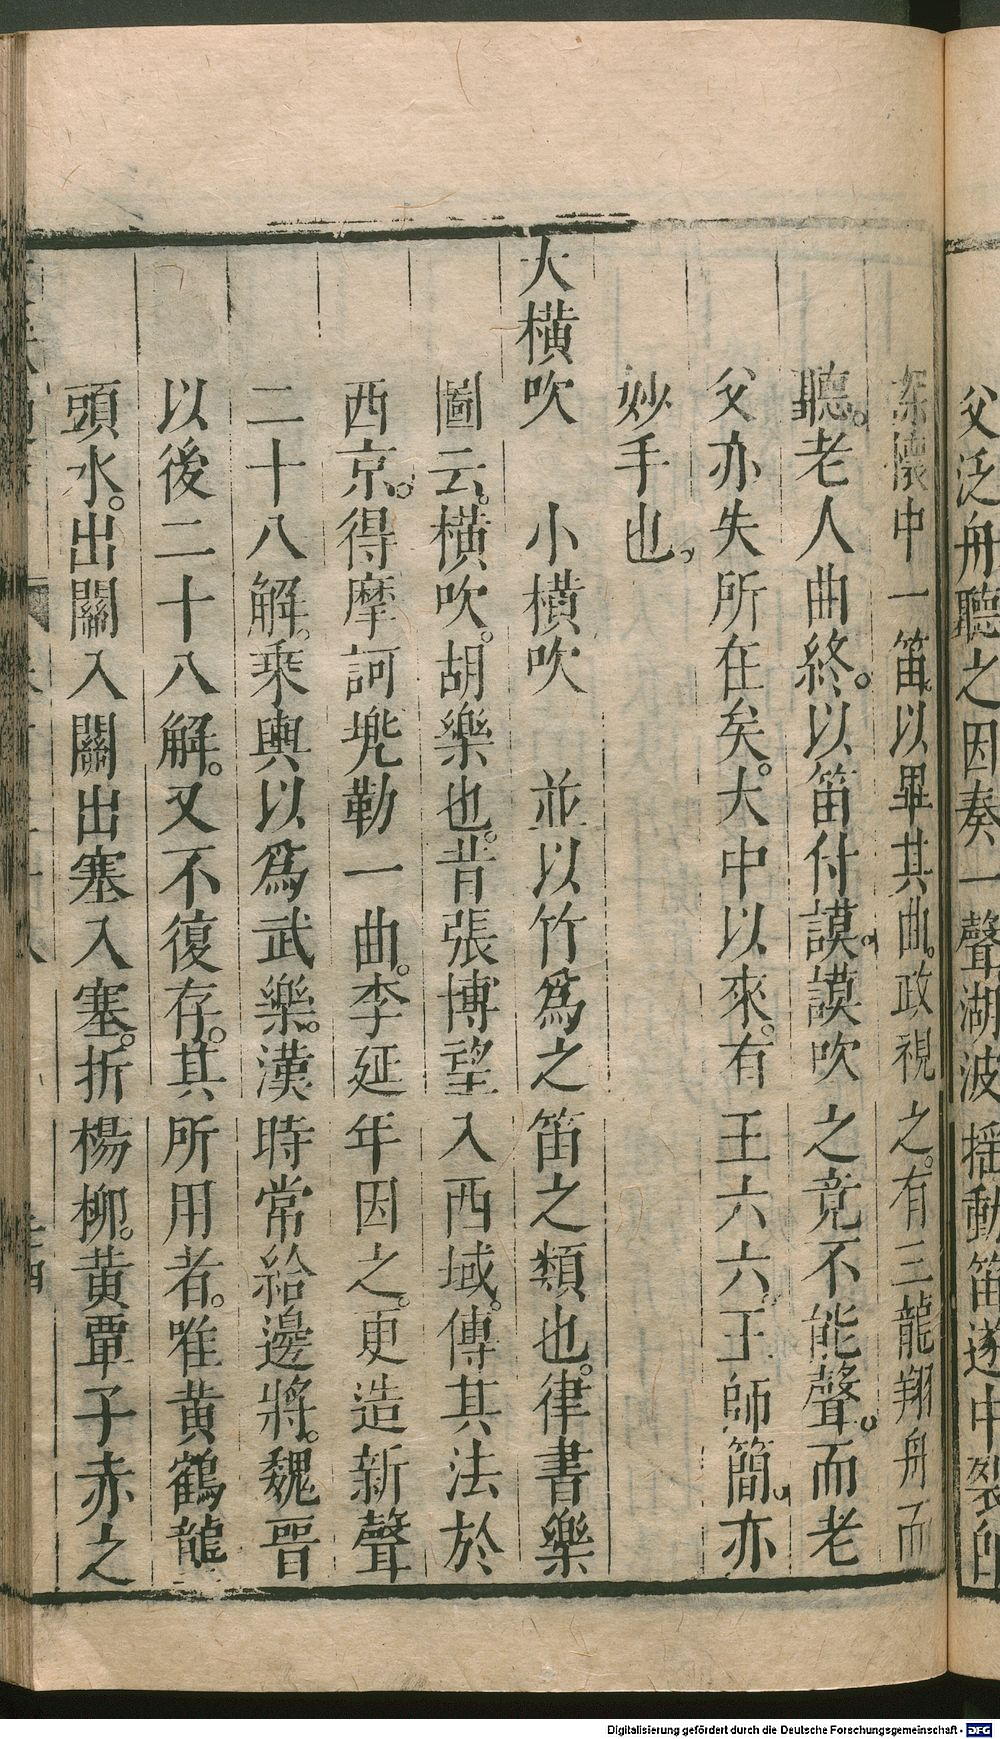 父泛舟聽之因奏一聲湖波搖動笛遂中裂即
探懷中一笛。以畢其曲。政視之。有三龍翔舟而
聽。老人曲終。以笛付謨。謨吹之竟不能聲。而老
父亦失所在矣。大中以來。有王六六。王師簡。亦
妙手也。
大橫吹 小橫吹 並以竹爲之笛之類也。律書樂
圖云。橫吹。胡樂也。昔張博望入西域。傳其法於
西京。得摩訶兠勒一曲。李延年因之。更造新聲
二十八解。乘輿以爲武樂。漢時常給邊將。魏晉
以後二十八解。又不復存。其所用者。唯黄鶴龍
頭水。出關入關出塞入塞。折楊柳。黄覃子赤之
Digitalisierung gefördert durch die Deutsche Forschungsgemeinschaft - DFG